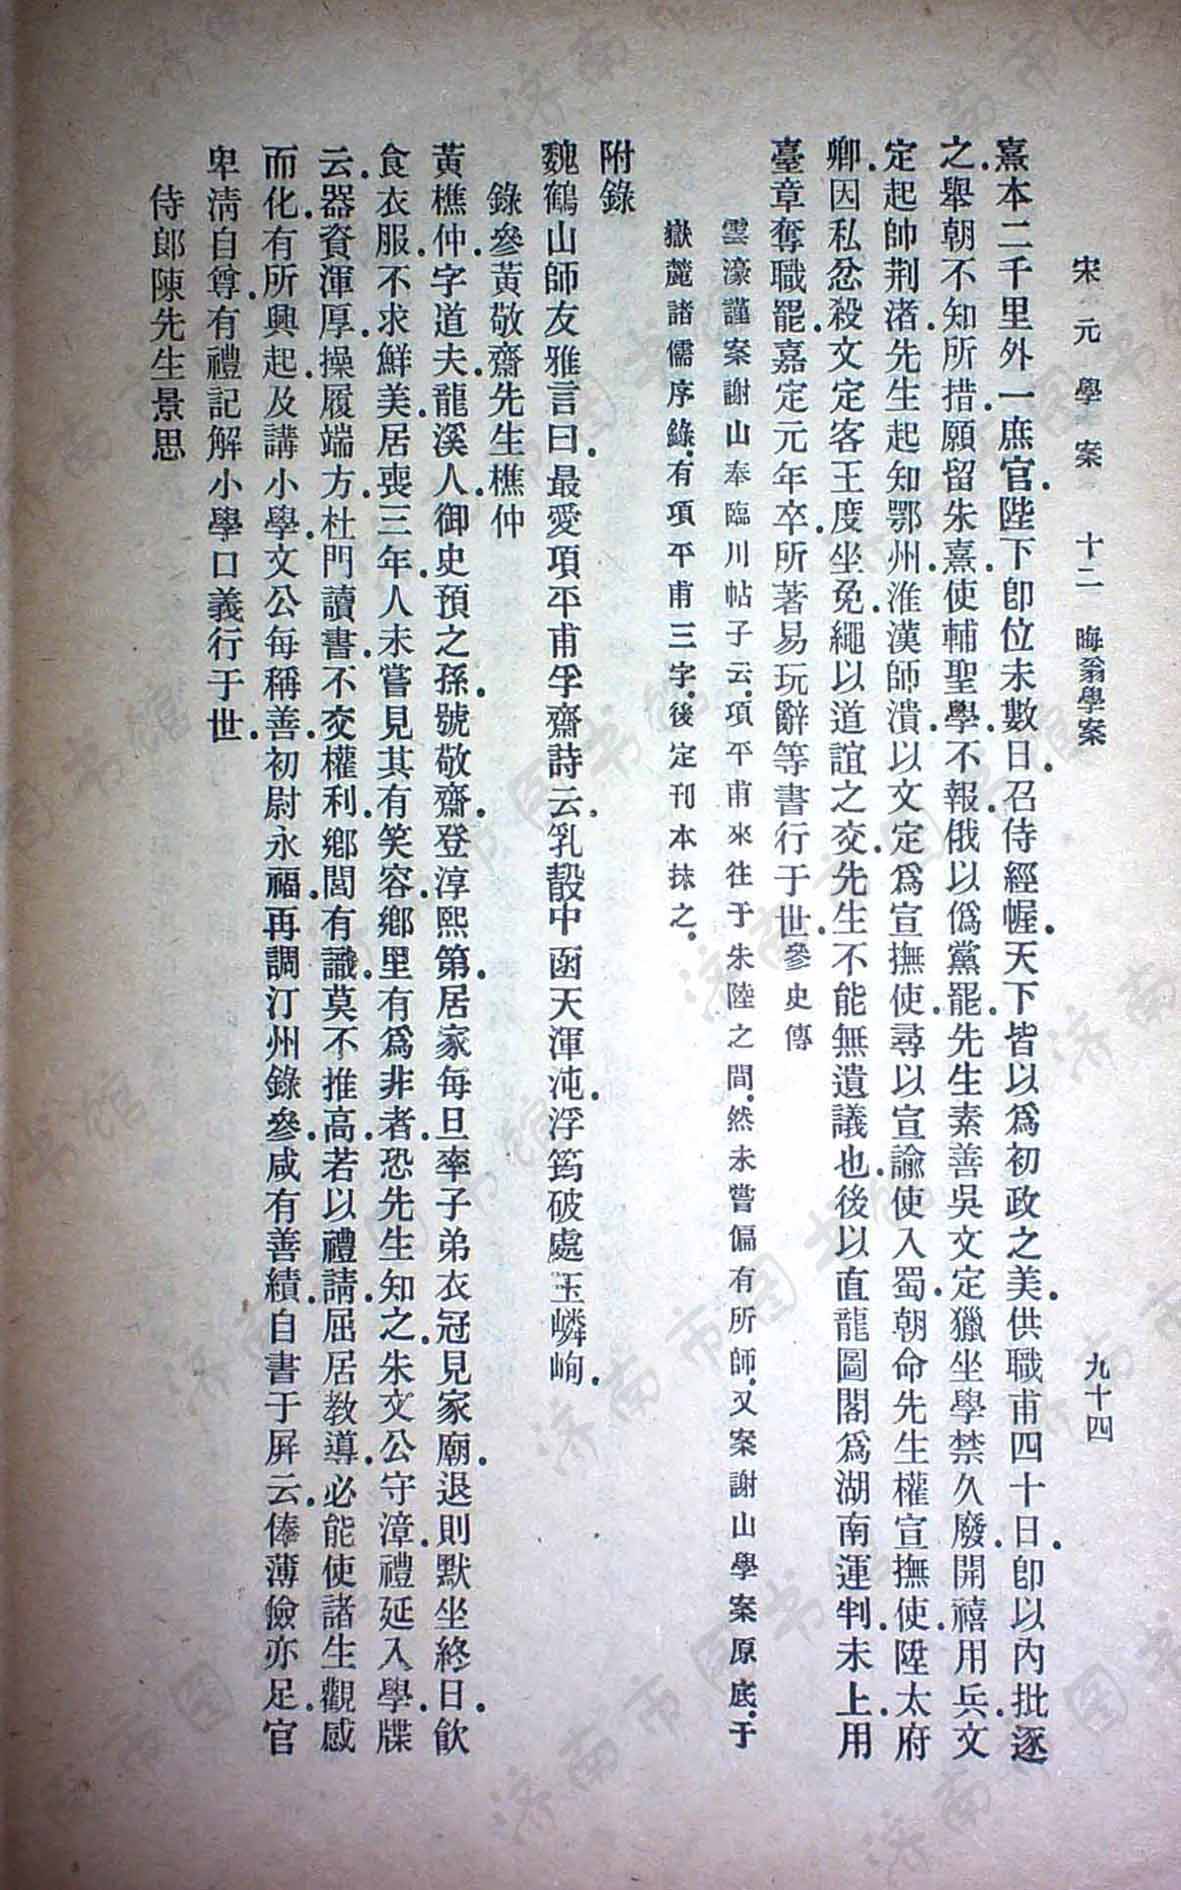 宋元學案 十二 晦翁學案 九十四
熹本二千里外一庶官。陛下卽位未數日。召侍經幄。天下皆以爲初政之美。供職甫四十日。卽以內批逐
之。舉朝不知所措。願留朱熹。使輔聖學。不報。俄以僞黨罷。先生素善吳文定獵。坐學禁久廢。開禧用兵。文
定起帥荆渚。先生起知鄂州。淮漢師潰。以文定爲宣撫使。尋以宣諭使入蜀。朝命先生權宣撫使。陞太府
卿。因私忿殺文定客王度坐免。繩以道誼之交。先生不能無遺議也。後以直龍圖閣爲湖南運判。未上。用
臺章奪職罷。嘉定元年卒。所著易玩辭等書行于世。參史傳
雲濠謹案謝山奉臨川帖子云。項平甫來往于朱陸之間。然未嘗偏有所師。又案謝山學案原底。于
嶽麓諸儒序錄。有項平甫三字。後定刊本抹之。
附錄
魏鶴山師友雅言曰。最愛項平甫孚齋詩云。乳㲉中函天渾沌。浮筠破處玉嶙峋。
錄參黃敬齋先生樵仲
黃樵仲。字道夫。龍溪人。御史預之孫。號敬齋。登淳熙第。居家每旦率子弟衣冠見家廟。退則默坐終日。飮
食衣服。不求鮮美。居喪三年。人未嘗見其有笑容。鄉里有爲非者。恐先生知之。朱文公守漳。禮延入學。牒
云。器資渾厚。操履端方。杜門讀書。不交權利。鄉閭有識。莫不推高。若以禮請。屈居敎導。必能使諸生觀感
而化。有所興起。及講小學。文公每稱善。初尉永福。再調汀州錄參。咸有善績。自書于屛云。俸薄儉亦足。官
卑淸自尊。有禮記解小學口義行于世。
侍郞陳先生景思